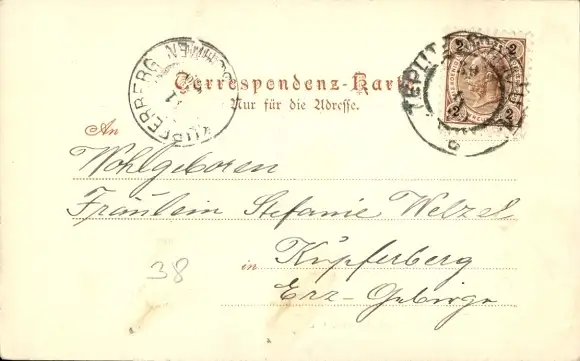 Correspondenz-Karte
Nur für die Adresse.
KUPFERBERG BÖHMEN
TEPLITZ
2 2
2 2
An
Wohlgeboren
Fräulein Stefanie Welzel
in Kupferberg
Erz-Gebirge
38